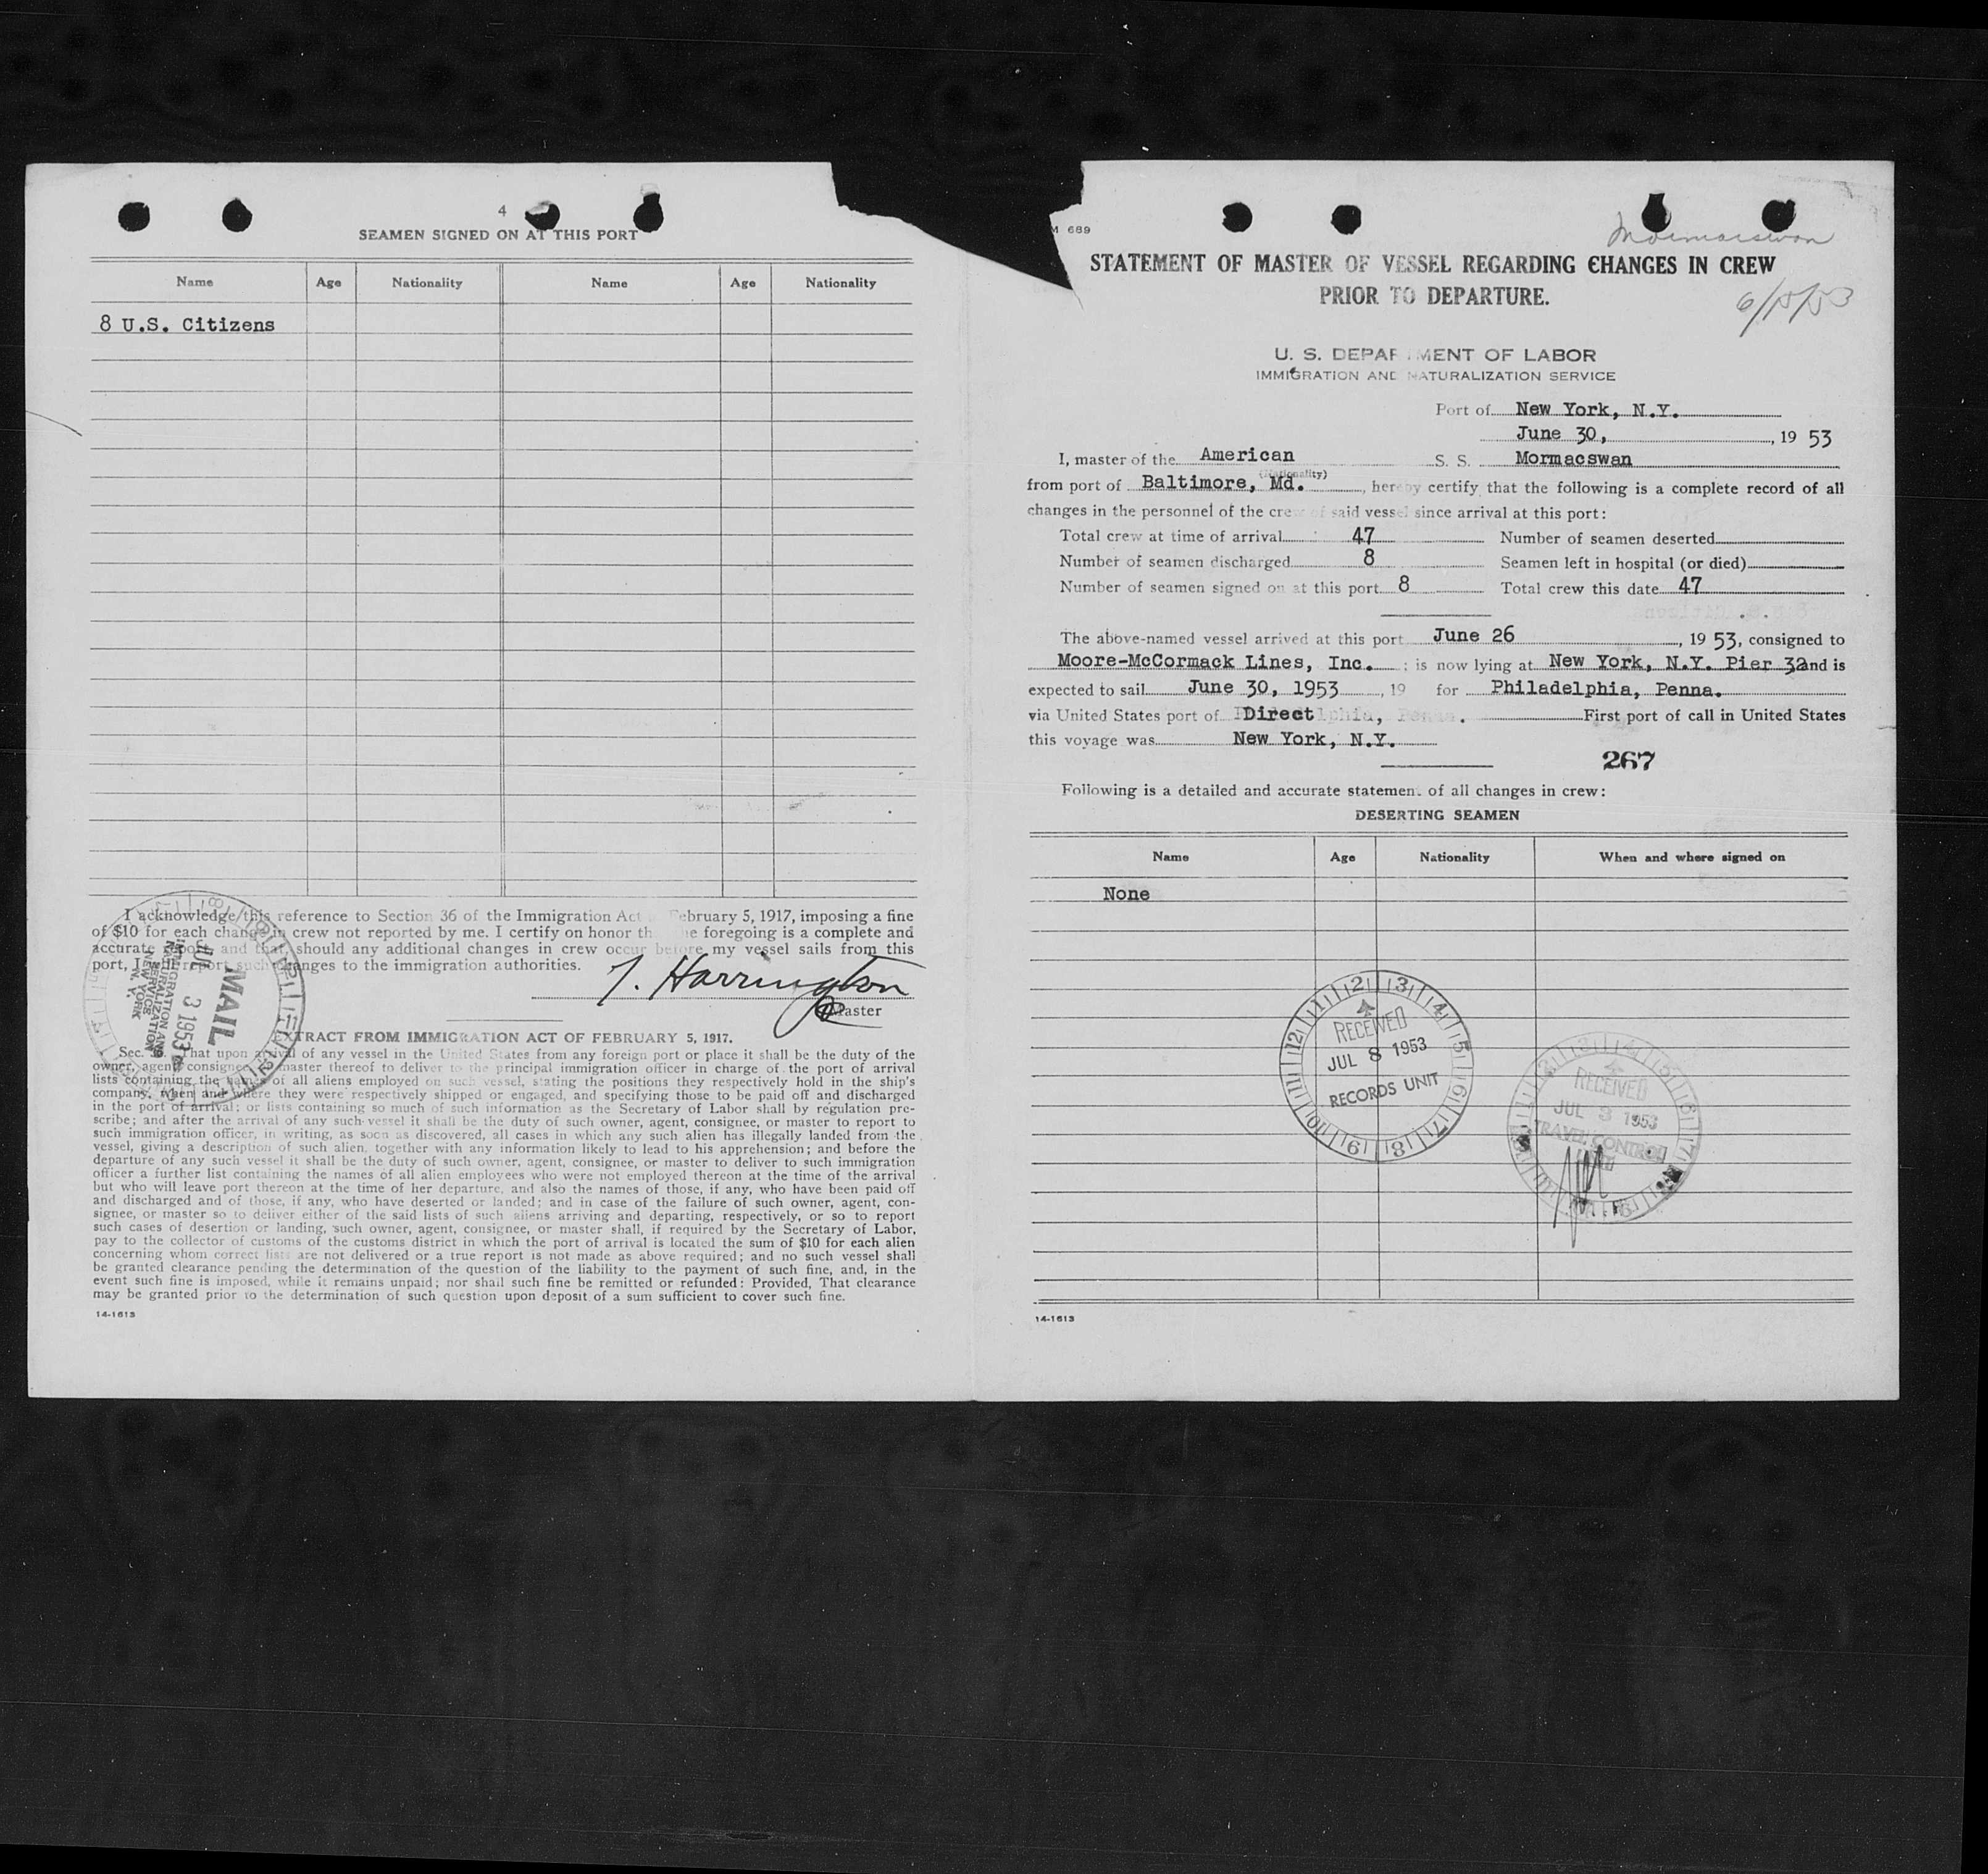 4
SEAMEN SIGNED ON AT THIS PORT
Name Age Nationality Name Age Nationality
8 U.S. Citizens
I acknowledge this reference to Section 36 of the Immigration Act February 5, 1917, imposing a fine
of $10 for each change in crew not reported by me. I certify on honor the foregoing is a complete and
accurate and that should any additional changes in crew occur before my vessel sails from this
port, I will report such changes to the immigration authorities.
T. Harrington
Master
MAIL
JUL 3 1953
IMMIGRATION AND
NATURALIZATION
SERVICE
NEW YORK
N. Y.
EXTRACT FROM IMMIGRATION ACT OF FEBRUARY 5, 1917.
Sec. That upon arrival of any vessel in the United States from any foreign port or place it shall be the duty of the
owner, agent, consignee, master thereof to deliver to the principal immigration officer in charge of the port of arrival
lists containing the names of all aliens employed on such vessel, stating the positions they respectively hold in the ship's
company, when and where they were respectively shipped or engaged, and specifying those to be paid off and discharged
in the port of arrival; or lists containing so much of such information as the Secretary of Labor shall by regulation pre-
scribe; and after the arrival of any such vessel it shall be the duty of such owner, agent, consignee, or master to report to
such immigration officer, in writing, as soon as discovered, all cases in which any such alien has illegally landed from the
vessel, giving a description of such alien, together with any information likely to lead to his apprehension; and before the
departure of any such vessel it shall be the duty of such owner, agent, consignee, or master to deliver to such immigration
officer a further list containing the names of all alien employees who were not employed thereon at the time of the arrival
but who will leave port thereon at the time of her departure, and also the names of those, if any, who have been paid off
and discharged and of those, if any, who have deserted or landed; and in case of the failure of such owner, agent, con-
signee, or master so to deliver either of the said lists of such aliens arriving and departing, respectively, or so to report
such cases of desertion or landing, such owner, agent, consignee, or master shall, if required by the Secretary of Labor,
pay to the collector of customs of the customs district in which the port of arrival is located the sum of $10 for each alien
concerning whom correct lists are not delivered or a true report is not made as above required; and no such vessel shall
be granted clearance pending the determination of the question of the liability to the payment of such fine, and, in the
event such fine is imposed, while it remains unpaid; nor shall such fine be remitted or refunded: Provided, That clearance
may be granted prior to the determination of such question upon deposit of a sum sufficient to cover such fine.
14-1613
M 689
Mormacswan
STATEMENT OF MASTER OF VESSEL REGARDING CHANGES IN CREW
PRIOR TO DEPARTURE.
6/15/53
U. S. DEPARTMENT OF LABOR
IMMIGRATION AND NATURALIZATION SERVICE
Port of New York, N.Y.
June 30, , 19 53
I, master of the American S. S. Mormacswan
(Nationality)
from port of Baltimore, Md. , hereby certify that the following is a complete record of all
changes in the personnel of the crew of said vessel since arrival at this port:
Total crew at time of arrival 47 Number of seamen deserted
Number of seamen discharged 8 Seamen left in hospital (or died)
Number of seamen signed on at this port 8 Total crew this date 47
The above-named vessel arrived at this port June 26 , 19 53, consigned to
Moore-McCormack Lines, Inc. ; is now lying at New York, N.Y. Pier 32 and is
expected to sail June 30, 1953 , 19 for Philadelphia, Penna.
via United States port of Direct . First port of call in United States
this voyage was New York, N.Y.
267
Following is a detailed and accurate statement of all changes in crew:
DESERTING SEAMEN
Name Age Nationality When and where signed on
None
RECEIVED
JUL 8 1953
RECORDS UNIT
RECEIVED
JUL 3 1953
TRAVEL CONTROL
14-1613